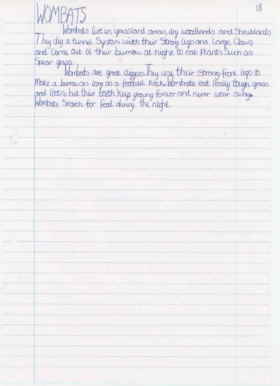 WOMBATS
18
Wombats live in grassland areas, dry woodlands and shrublands
They dig a tunnel System with their Strong legs and Large Claws
and Come Out of their burrow at night to eat Plants Such as
Spear grass.
Wombats are great diggers They use their Strong front legs to
Make a burrow as long as a football field. Wombats eat Really tough grass
and roots but their teeth Keep growing forever and never wear away.
Wombats Search for food during the night.